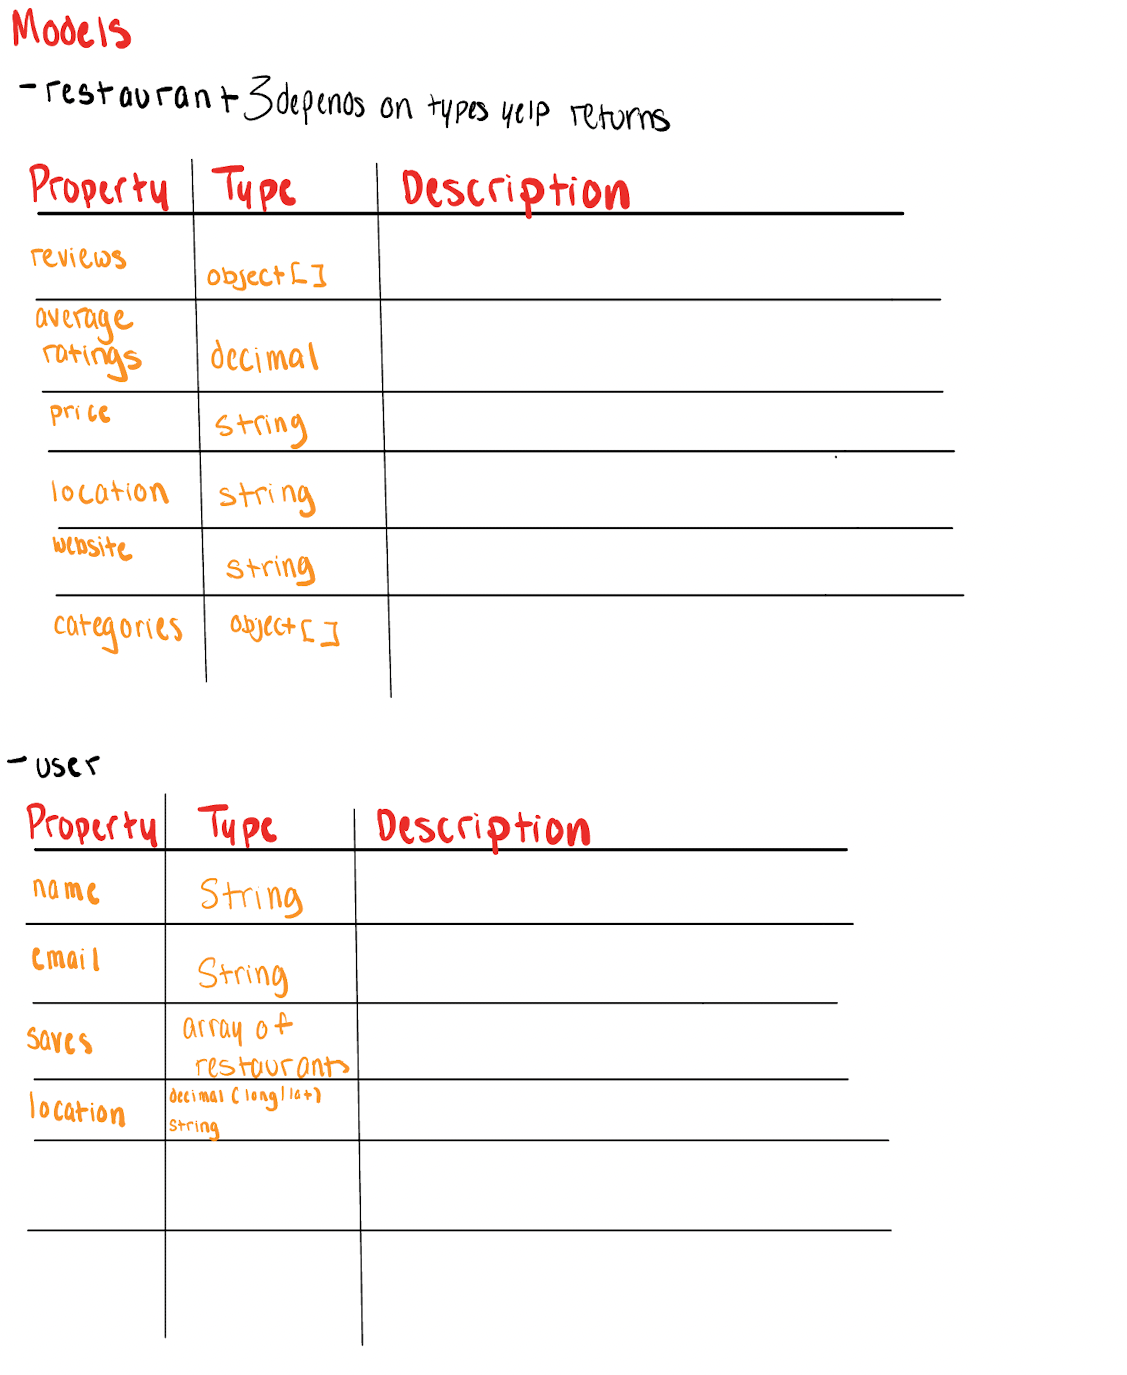 Models
- restaurant } depends on types yelp returns
Property Type Description
reviews object[]
average
ratings decimal
price string
location string
website string
categories object[]
- user
Property Type Description
name String
email String
saves array of
restaurants
location decimal (long/lat)
string